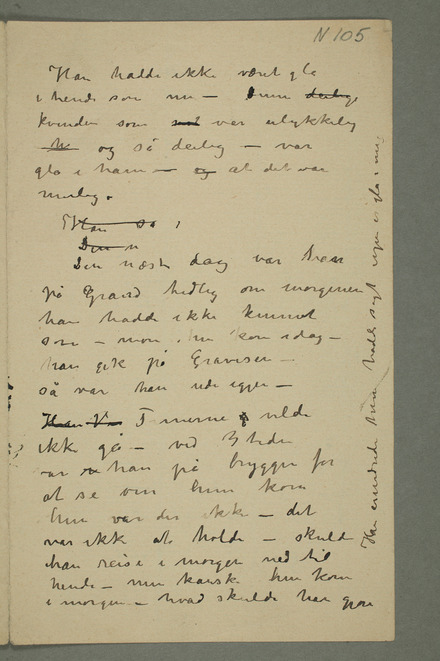 N 105
Han hadde ikke været gla
i hende som nu — Denne deilige
kvinden som var ulykkelig
og så deilig — var
gla i ham — og at det var
mulig.
Han så
Den n
Den næste dag var han
på Grand tidlig om morgenen
han hadde ikke kunnet
sove — mon hun kom idag —
han gik på Gravesen —
så var han ude igjen —
Han V Timerne vilde
ikke gå — ved 3 tiden
var han på bryggen for
at se om hun kom
hun var der ikke — det
var ikke at holde — skulde
han reise i morgen ned til
hende — men kanske hun kom
i morgen — hvad skulde han gjøre
Han erindrede hun hadde sagt ingen er gla i mig